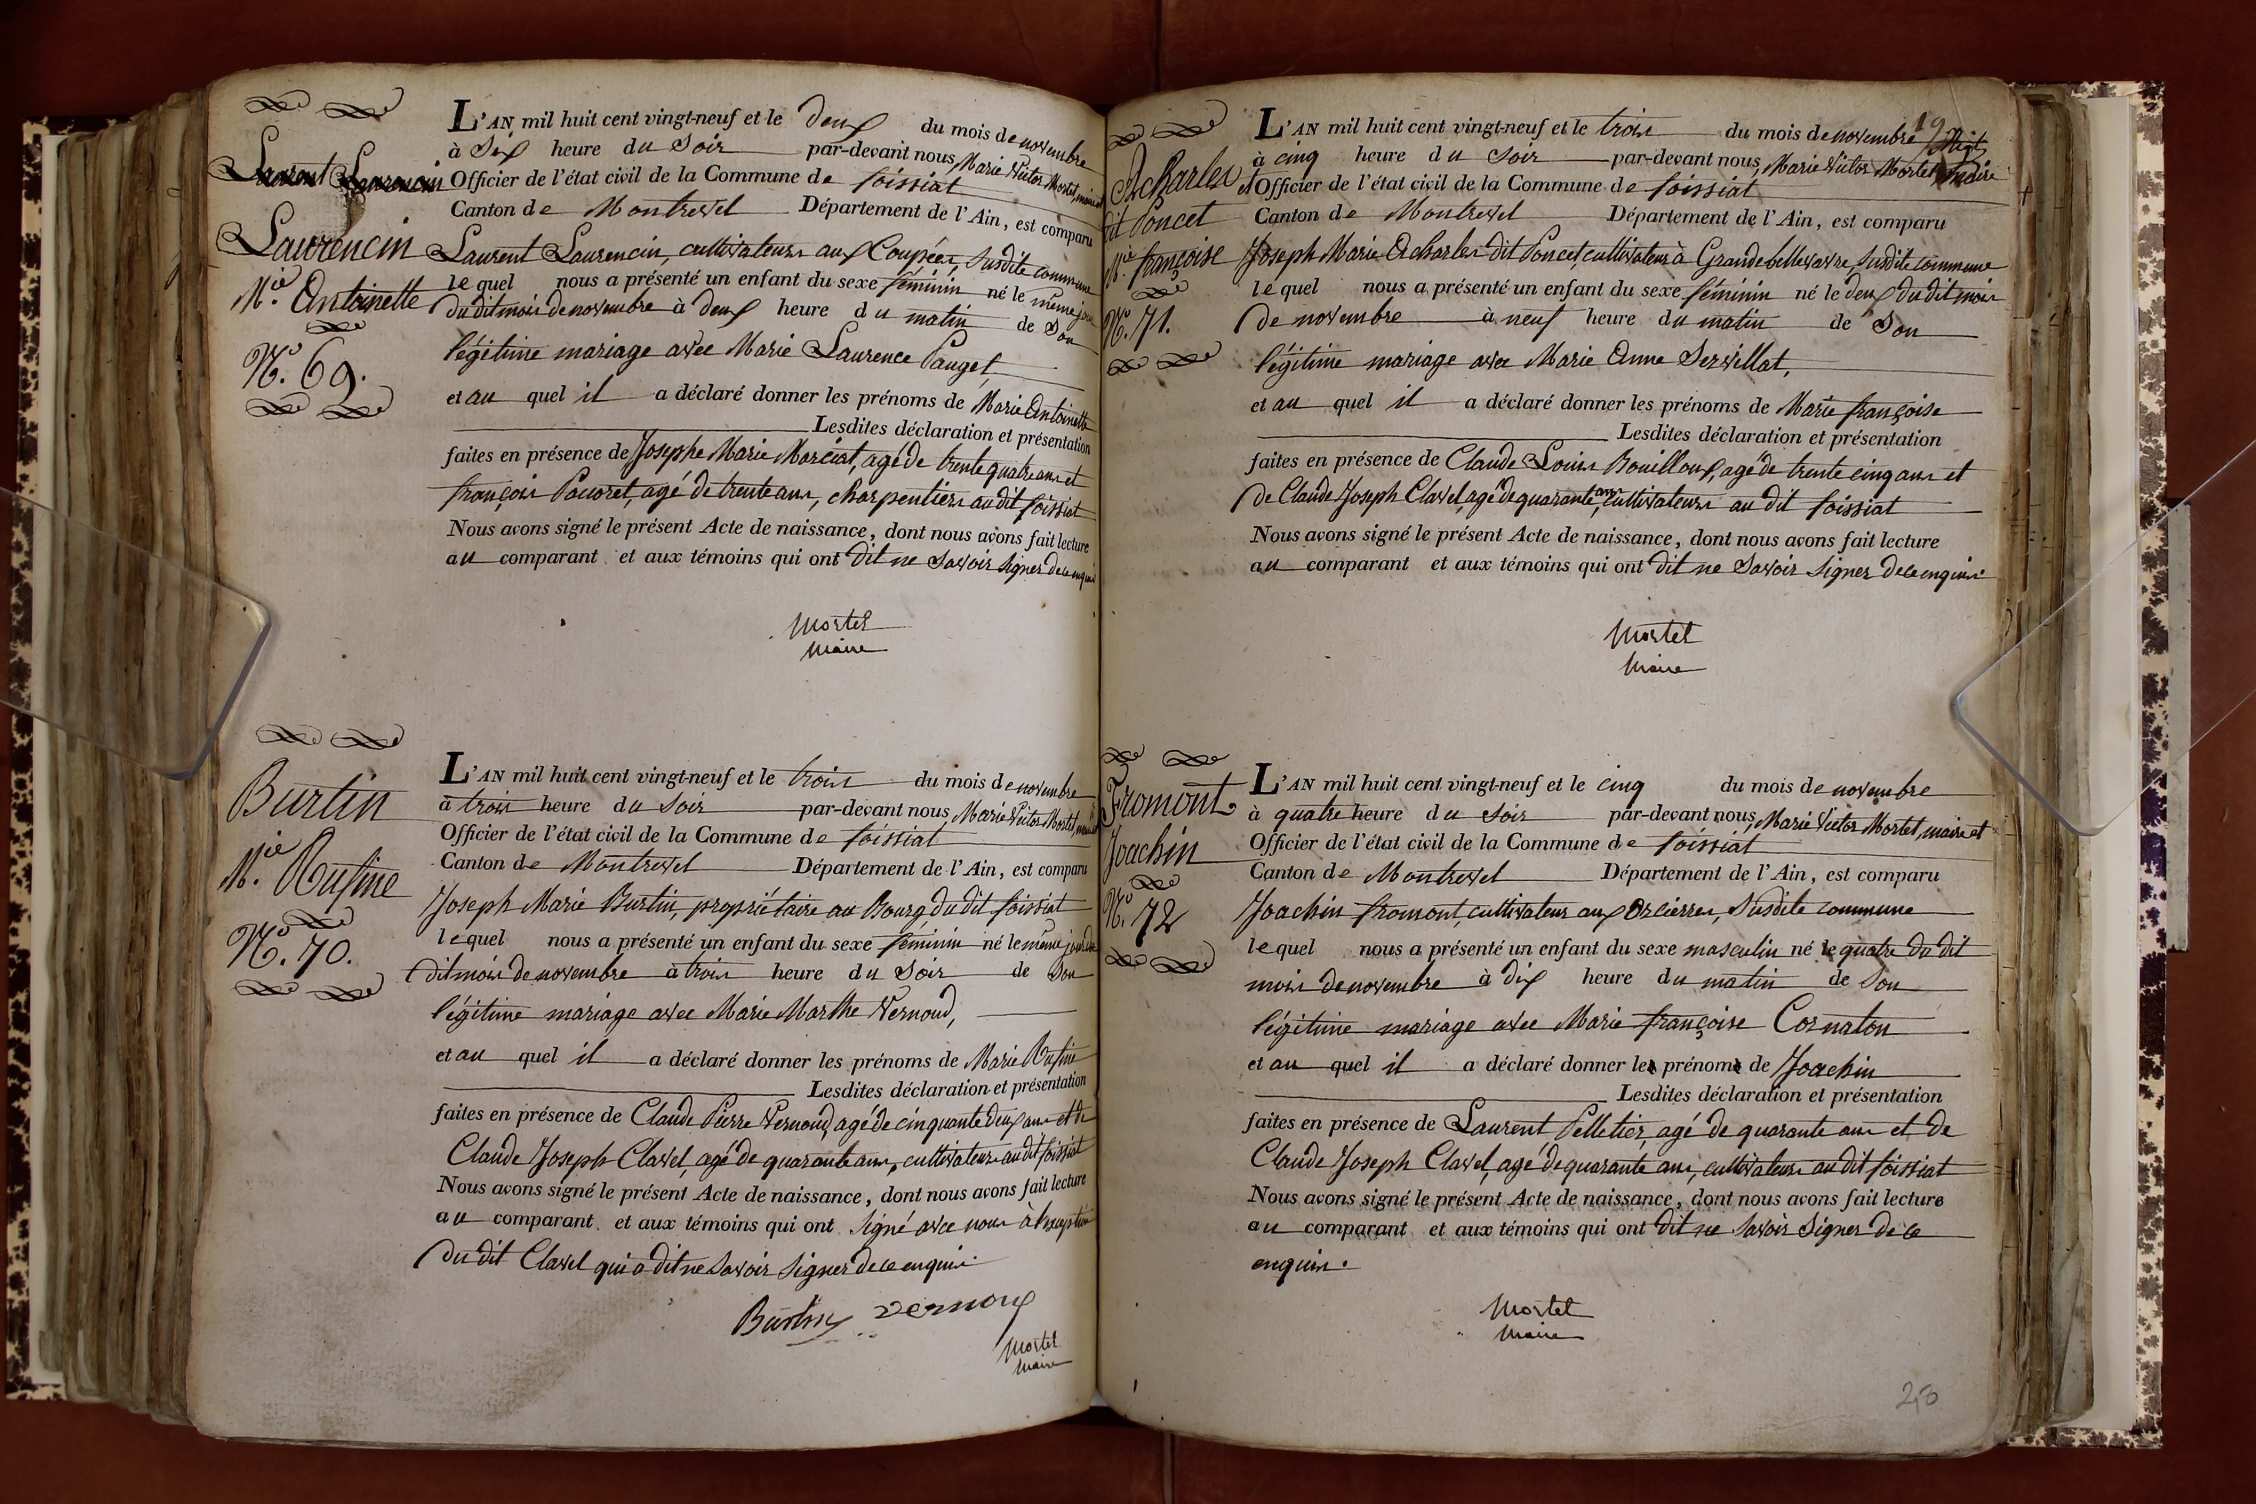 Laurent Laurencin
Laurencin
M.ie Antoinette
N.o 69.
L'AN mil huit cent vingt-neuf et le deux du mois de novembre
à Six heure du Soir par-devant nous, Marie Victor Mortel, maire et
Officier de l'état civil de la Commune de foissiat
Canton de Montrevel Département de l'Ain, est comparu
Laurent Laurencin, cultivateur aux Coupées, Susdite commune
lequel nous a présenté un enfant du sexe féminin né le même jour
dudit mois de novembre à deux heure du matin de Son
légitime mariage avec Marie Laurence Pauget,
et au quel il a déclaré donner les prénoms de Marie Antoinette
Lesdites déclaration et présentation
faites en présence de Josephe Marie Morciat, agé de trente quatre ans et
françois Pouoret, agé de trente ans, charpentiers au dit foissiat
Nous avons signé le présent Acte de naissance, dont nous avons fait lecture
au comparant et aux témoins qui ont dit ne Savoir Signer de ce enquis
Mortel
Maire
Burtin
M.ie Rufine
N.o 70.
L'AN mil huit cent vingt-neuf et le trois du mois de novembre
à trois heure du Soir par-devant nous, Marie Victor Mortel, maire et
Officier de l'état civil de la Commune de foissiat
Canton de Montrevel Département de l'Ain, est comparu
Joseph Marie Burtin, propriétaire au Bourg du dit foissiat
lequel nous a présenté un enfant du sexe féminin né le même jour du
dit mois de novembre à trois heure du Soir de Son
légitime mariage avec Marie Marthe Vernoud,
et au quel il a déclaré donner les prénoms de Marie Rufine
Lesdites déclaration et présentation
faites en présence de Claude Pierre Vernoud, agé de cinquante deux ans et de
Claude Joseph Clavel, agé de quarante ans, cultivateurs au dit foissiat
Nous avons signé le présent Acte de naissance, dont nous avons fait lecture
au comparant et aux témoins qui ont Signé avec nous à l'exception
du dit Clavel qui a dit ne Savoir Signer de ce enquis.
Burtin Vernoux
Mortel
Maire
19
Acharles
dit Poncet
M.ie françoise
N.o 71.
L'AN mil huit cent vingt-neuf et le trois du mois de novembre
à cinq heure du Soir par-devant nous, Marie Victor Mortel maire
et Officier de l'état civil de la Commune de foissiat
Canton de Montrevel Département de l'Ain, est comparu
Joseph Marie Acharles dit Poncet, cultivateur à Grandebellevavre, Susdite commune
lequel nous a présenté un enfant du sexe féminin né le deux du dit mois
de novembre à neuf heure du matin de Son
légitime mariage avec Marie Anne Servillat,
et au quel il a déclaré donner les prénoms de Marie françoise
Lesdites déclaration et présentation
faites en présence de Claude Louis Bouilloux, agé de trente cinq ans et
de Claude Joseph Clavel, agé de quarante ans, cultivateurs au dit foissiat
Nous avons signé le présent Acte de naissance, dont nous avons fait lecture
au comparant et aux témoins qui ont dit ne Savoir Signer de ce enquis.
Mortel
Maire
Fromont
Joachin
N.o 72
L'AN mil huit cent vingt-neuf et le cinq du mois de novembre
à quatre heure du Soir par-devant nous, Marie Victor Mortel, maire et
Officier de l'état civil de la Commune de foissiat
Canton de Montrevel Département de l'Ain, est comparu
Joachin fromont, cultivateur aux Orcières, Susdite commune
lequel nous a présenté un enfant du sexe masculin né le quatre du dit
mois de novembre à dix heure du matin de Son
légitime mariage avec Marie françoise Cornaton
et au quel il a déclaré donner les prénoms de Joachin
Lesdites déclaration et présentation
faites en présence de Laurent Pelletier, agé de quarante ans et de
Claude Joseph Clavel, agé de quarante ans, cultivateurs au dit foissiat
Nous avons signé le présent Acte de naissance, dont nous avons fait lecture
au comparant et aux témoins qui ont dit ne Savoir Signer de ce
enquis.
Mortel
Maire